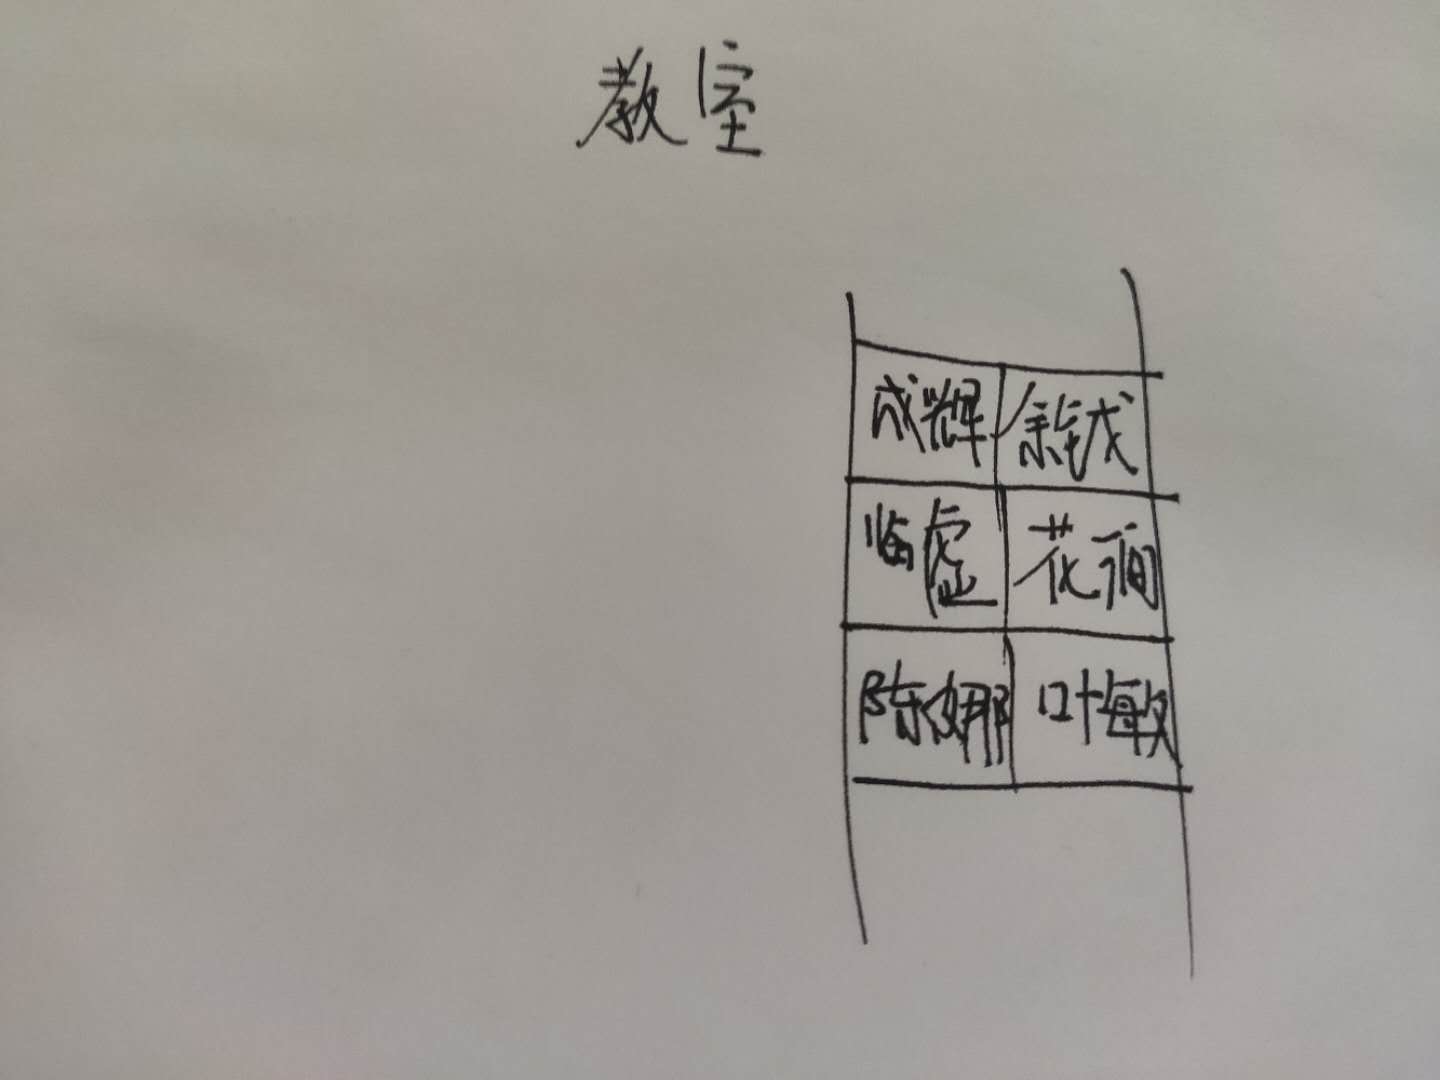 教室
成辉 余钱
临虚 花间
陈娜 叶敏